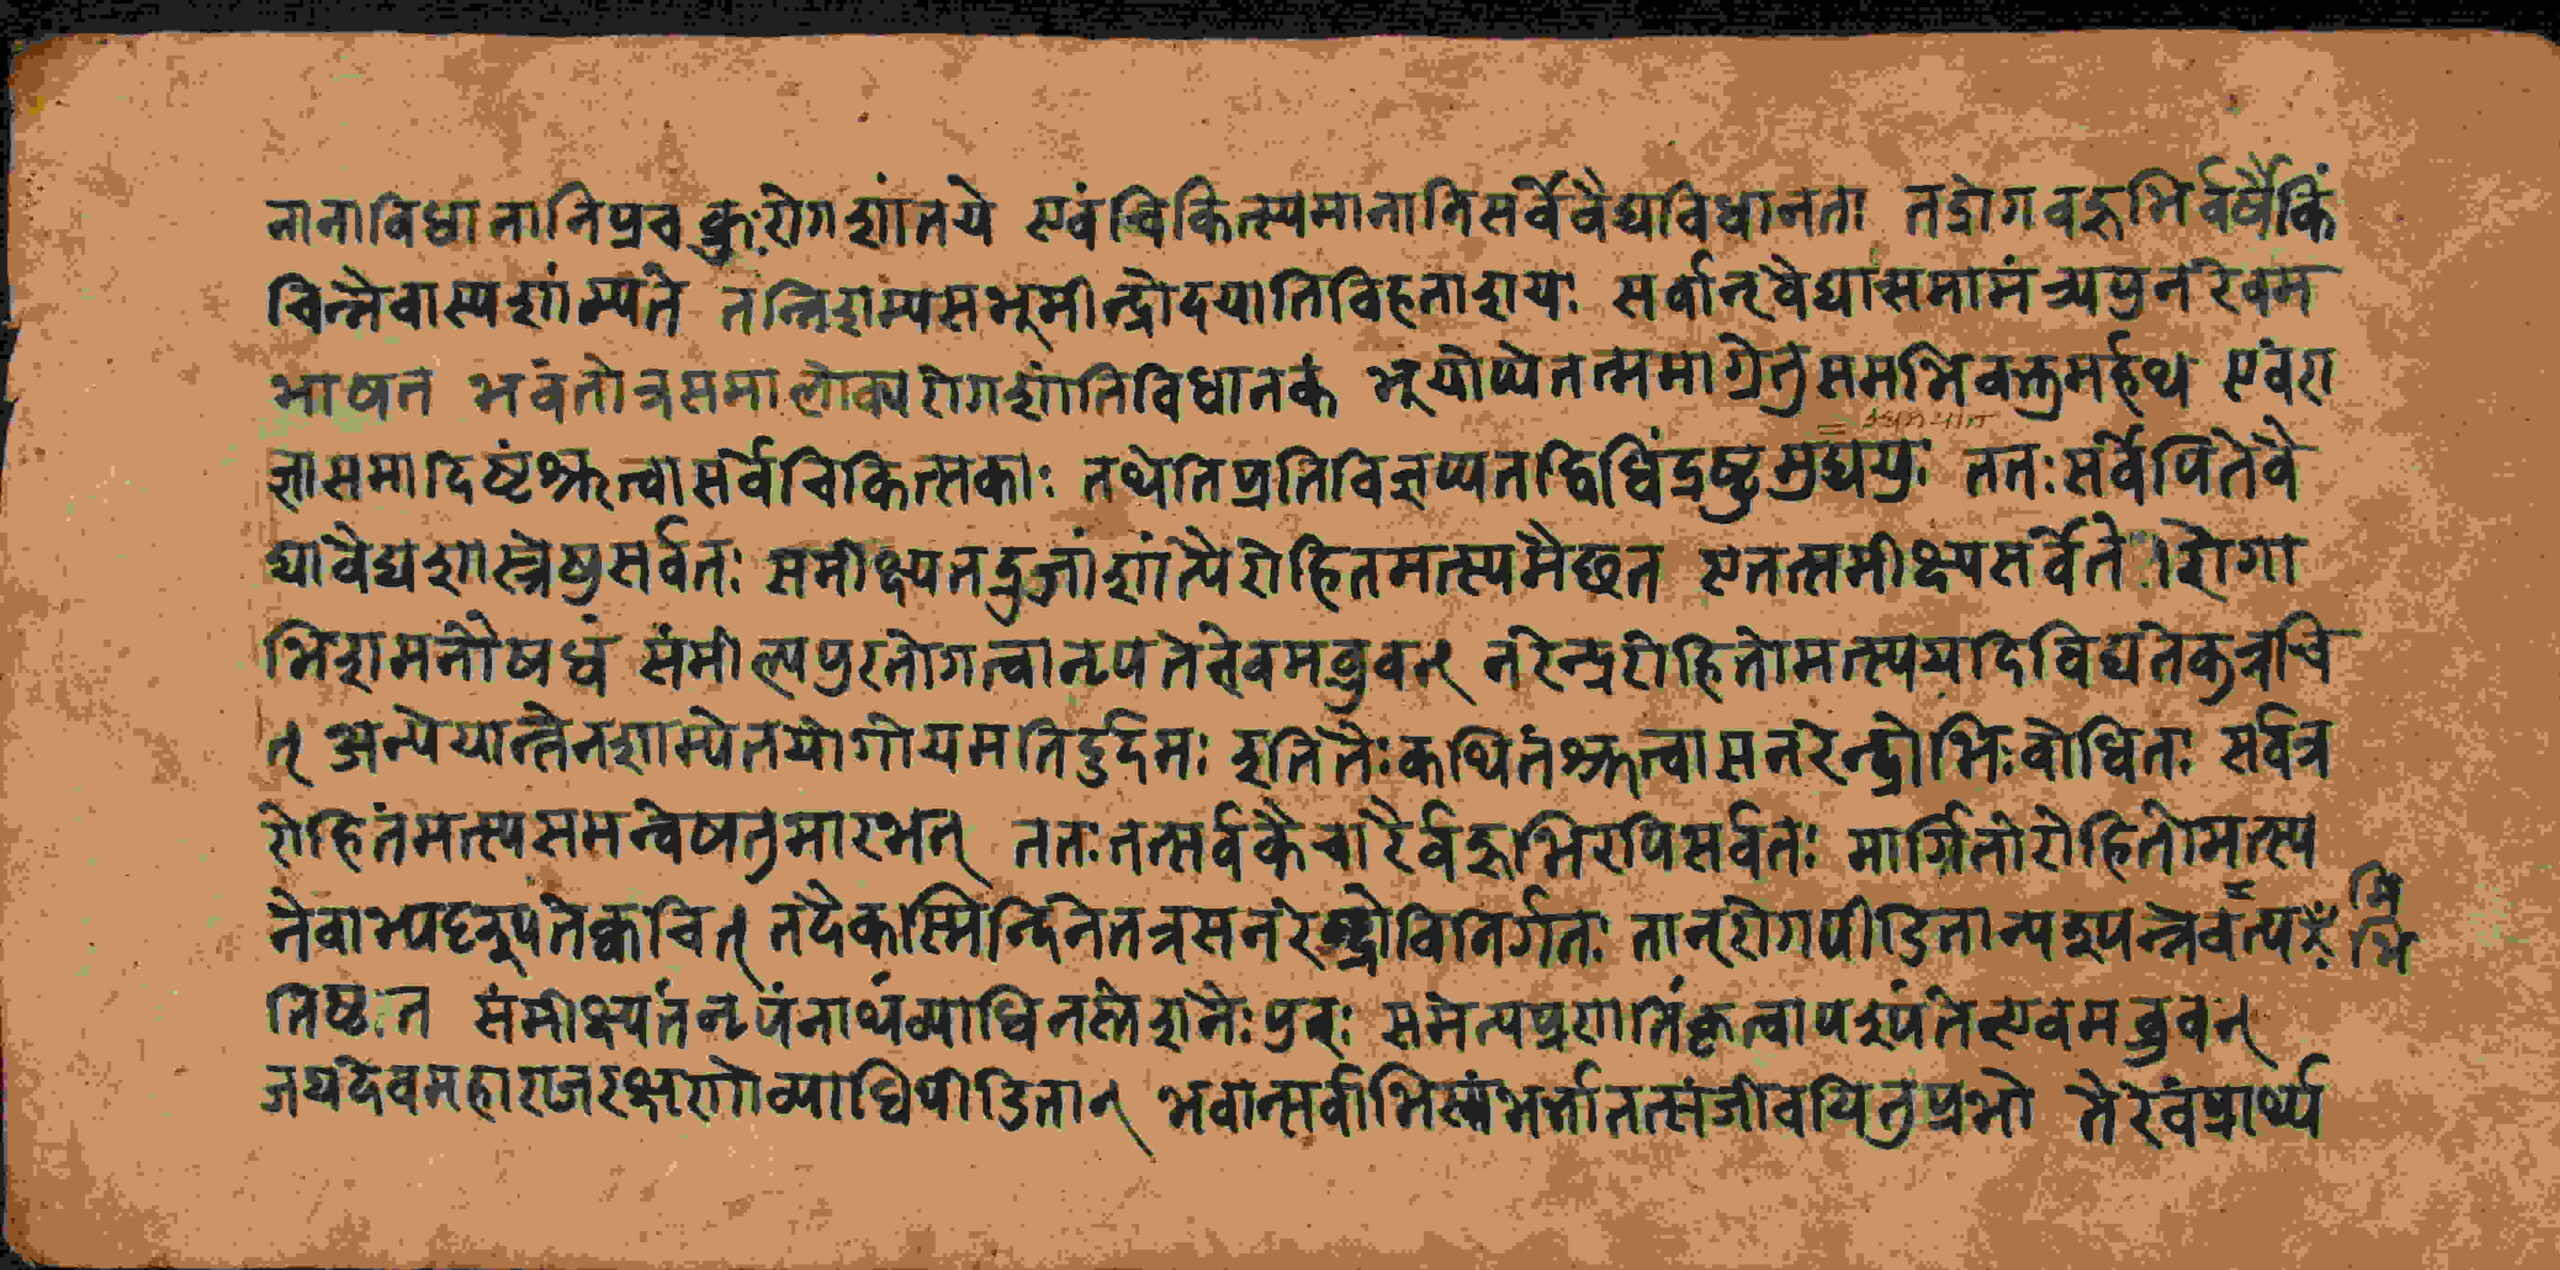 नानाविधानानिप्रचक्रुःरोगशांतये एवंचिकित्स्यमानानिसर्वेवैद्याविधानता तद्रोगवहुभिर्वर्षैकिं
चिन्नैवास्यशांम्यते तन्निशम्यसभूमीन्द्रोदयातिविहताशयः सर्वान्वैद्यांसमामंत्र्यपुनरेवम
भाषत भवंतोत्रसमालोक्यरोगशांतिविधानकं भूयोप्येतत्ममाग्रेतुसमभिवक्तुमर्हथ एवंरा
ज्ञासमादिष्टंश्रुत्वासर्वेचिकित्सकाः तथेतिप्रतिविज्ञप्यतद्विधिंद्रष्टुमुद्ययुः ततःसर्वेपितेवै
द्यावैद्यशास्त्रेषुसर्वतः समीक्ष्यतद्रुजांशांत्यैरोहितमत्स्यमैछत एतत्समीक्ष्यसर्वेते रोगा
भिशमनौषधं संमील्यपुरतोगत्वानृपतेत्वेवमव्रुवन् नरेन्द्ररोहितोमत्स्ययदिविद्यतेकुत्रचि
त् अन्येयान्तैनशाम्येतयोगोयमतिदुर्दमः इतितैःकथितंश्रुत्वासनरेन्द्रोभिःवोधितः सर्वत्र
रोहितंमत्स्यसमन्वेषतुमारभत् ततःतत्सर्वकैचारैर्वहुभिरपिसर्वतः मार्गितोरोहितोमत्स्य
नेवाभ्यदृश्यतेक्वचित् तदैकस्मिन्दिनेतत्रसनरेन्द्रोविनिर्गतः तान्रोगपीडितान्पश्यन्
तिष्ठत संमीक्ष्यतंनृपंनाथंव्याधिनस्तेशनैःपुरः समेत्यप्रणामिंकृत्वापश्यंतेत्एवमव्रुवन्
जयदेवमहाराजरक्षणोव्याधिपीडितान् भवान्सर्वाभिस्तंभर्त्तातत्संजीवयितुप्रभो तैरेवंप्रार्थ्य